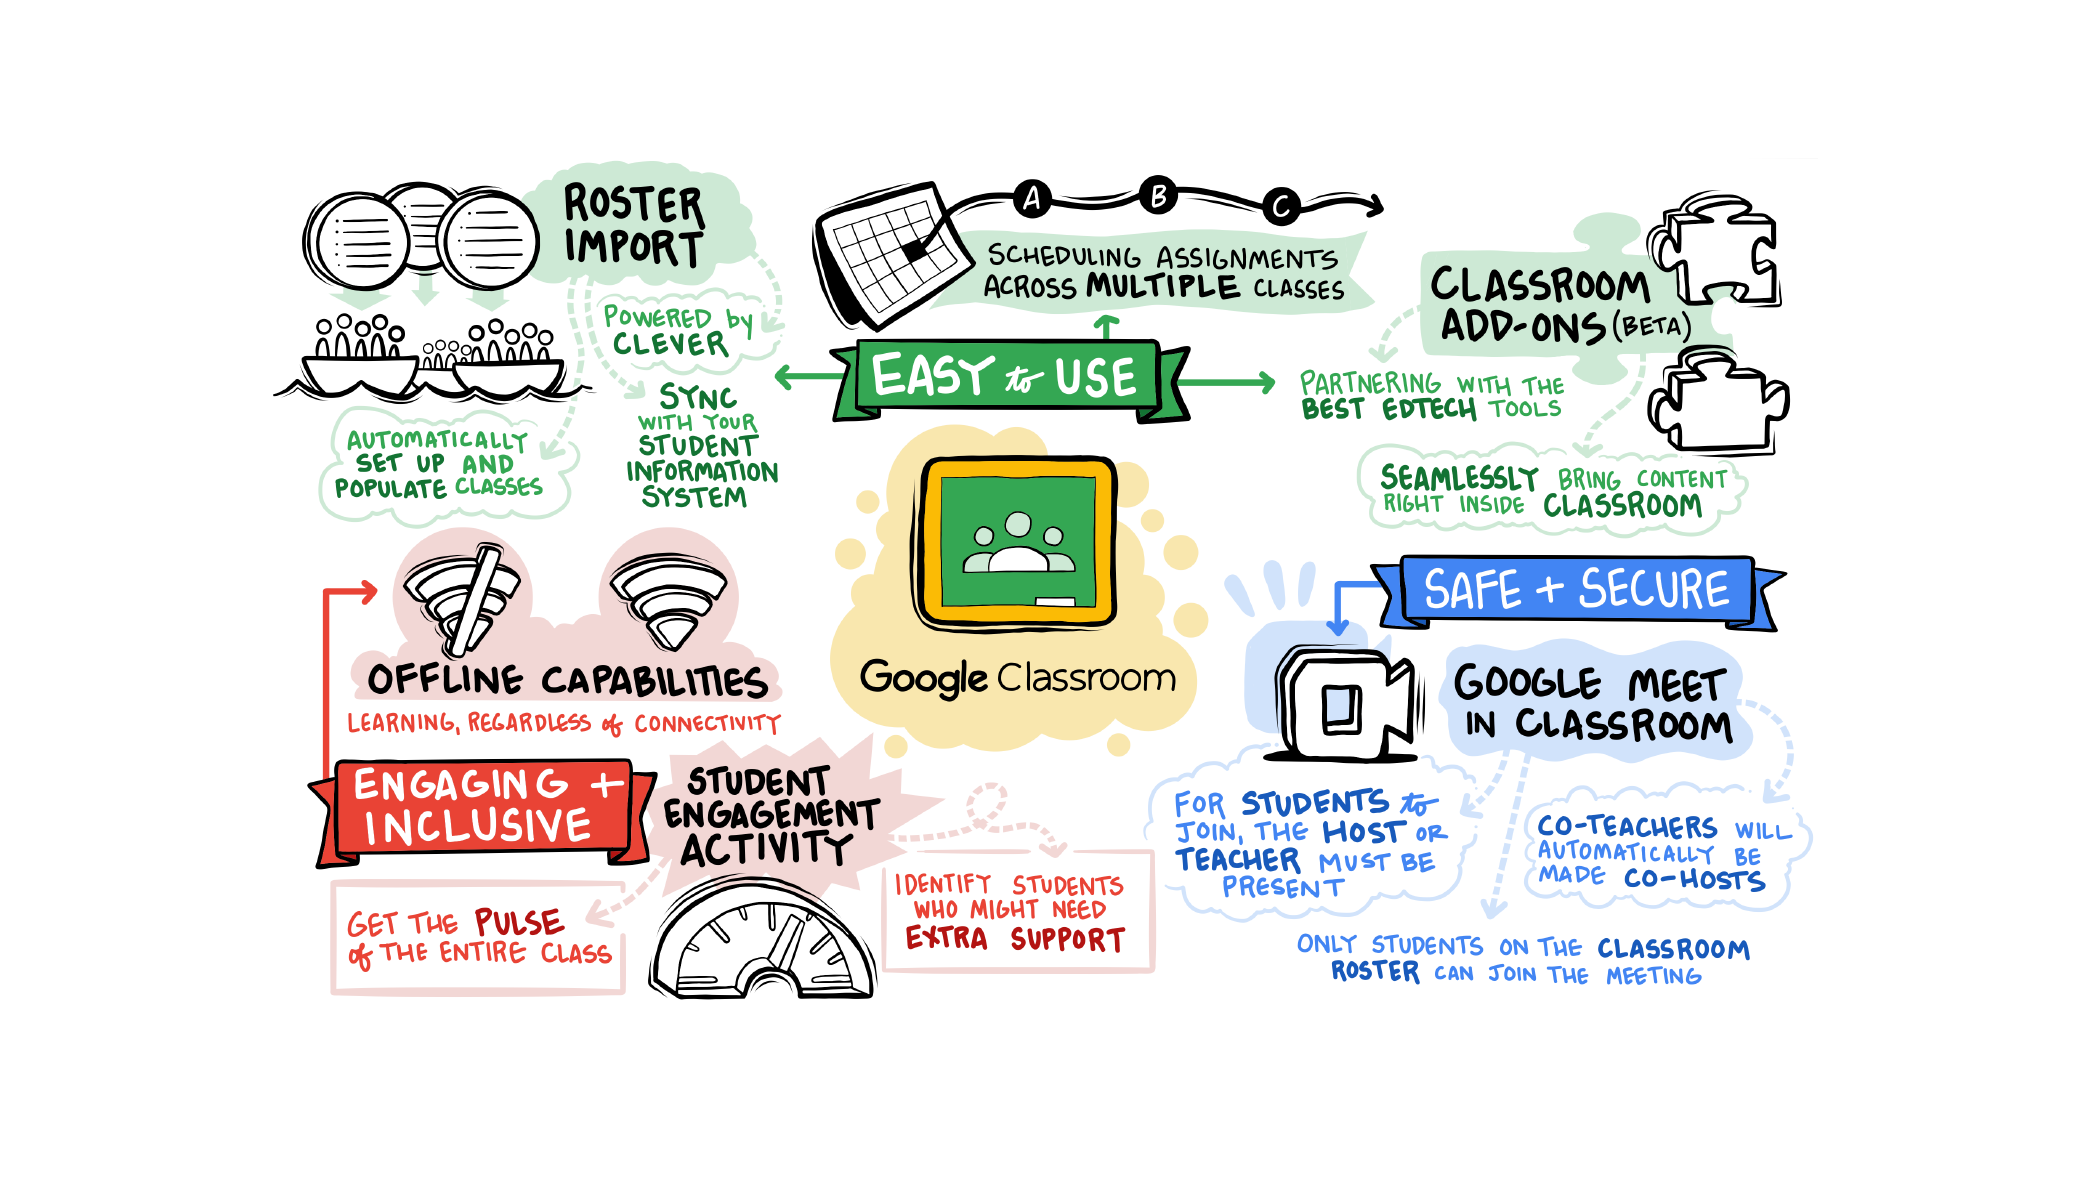 ROSTER
IMPORT
POWERED by
CLEVER
SYNC
WITH YOUR
STUDENT
INFORMATION
SYSTEM
AUTOMATICALLY
SET UP AND
POPULATE CLASSES
A B C
SCHEDULING ASSIGNMENTS
ACROSS MULTIPLE CLASSES
EASY to USE
CLASSROOM
ADD-ONS (BETA)
PARTNERING WITH THE
BEST EDTECH TOOLS
SEAMLESSLY BRING CONTENT
RIGHT INSIDE CLASSROOM
Google Classroom
OFFLINE CAPABILITIES
LEARNING, REGARDLESS of CONNECTIVITY
ENGAGING +
INCLUSIVE
STUDENT
ENGAGEMENT
ACTIVITY
GET THE PULSE
of THE ENTIRE CLASS
IDENTIFY STUDENTS
WHO MIGHT NEED
EXTRA SUPPORT
SAFE + SECURE
GOOGLE MEET
IN CLASSROOM
FOR STUDENTS to
JOIN, THE HOST OR
TEACHER MUST BE
PRESENT
CO-TEACHERS WILL
AUTOMATICALLY BE
MADE CO-HOSTS
ONLY STUDENTS ON THE CLASSROOM
ROSTER CAN JOIN THE MEETING